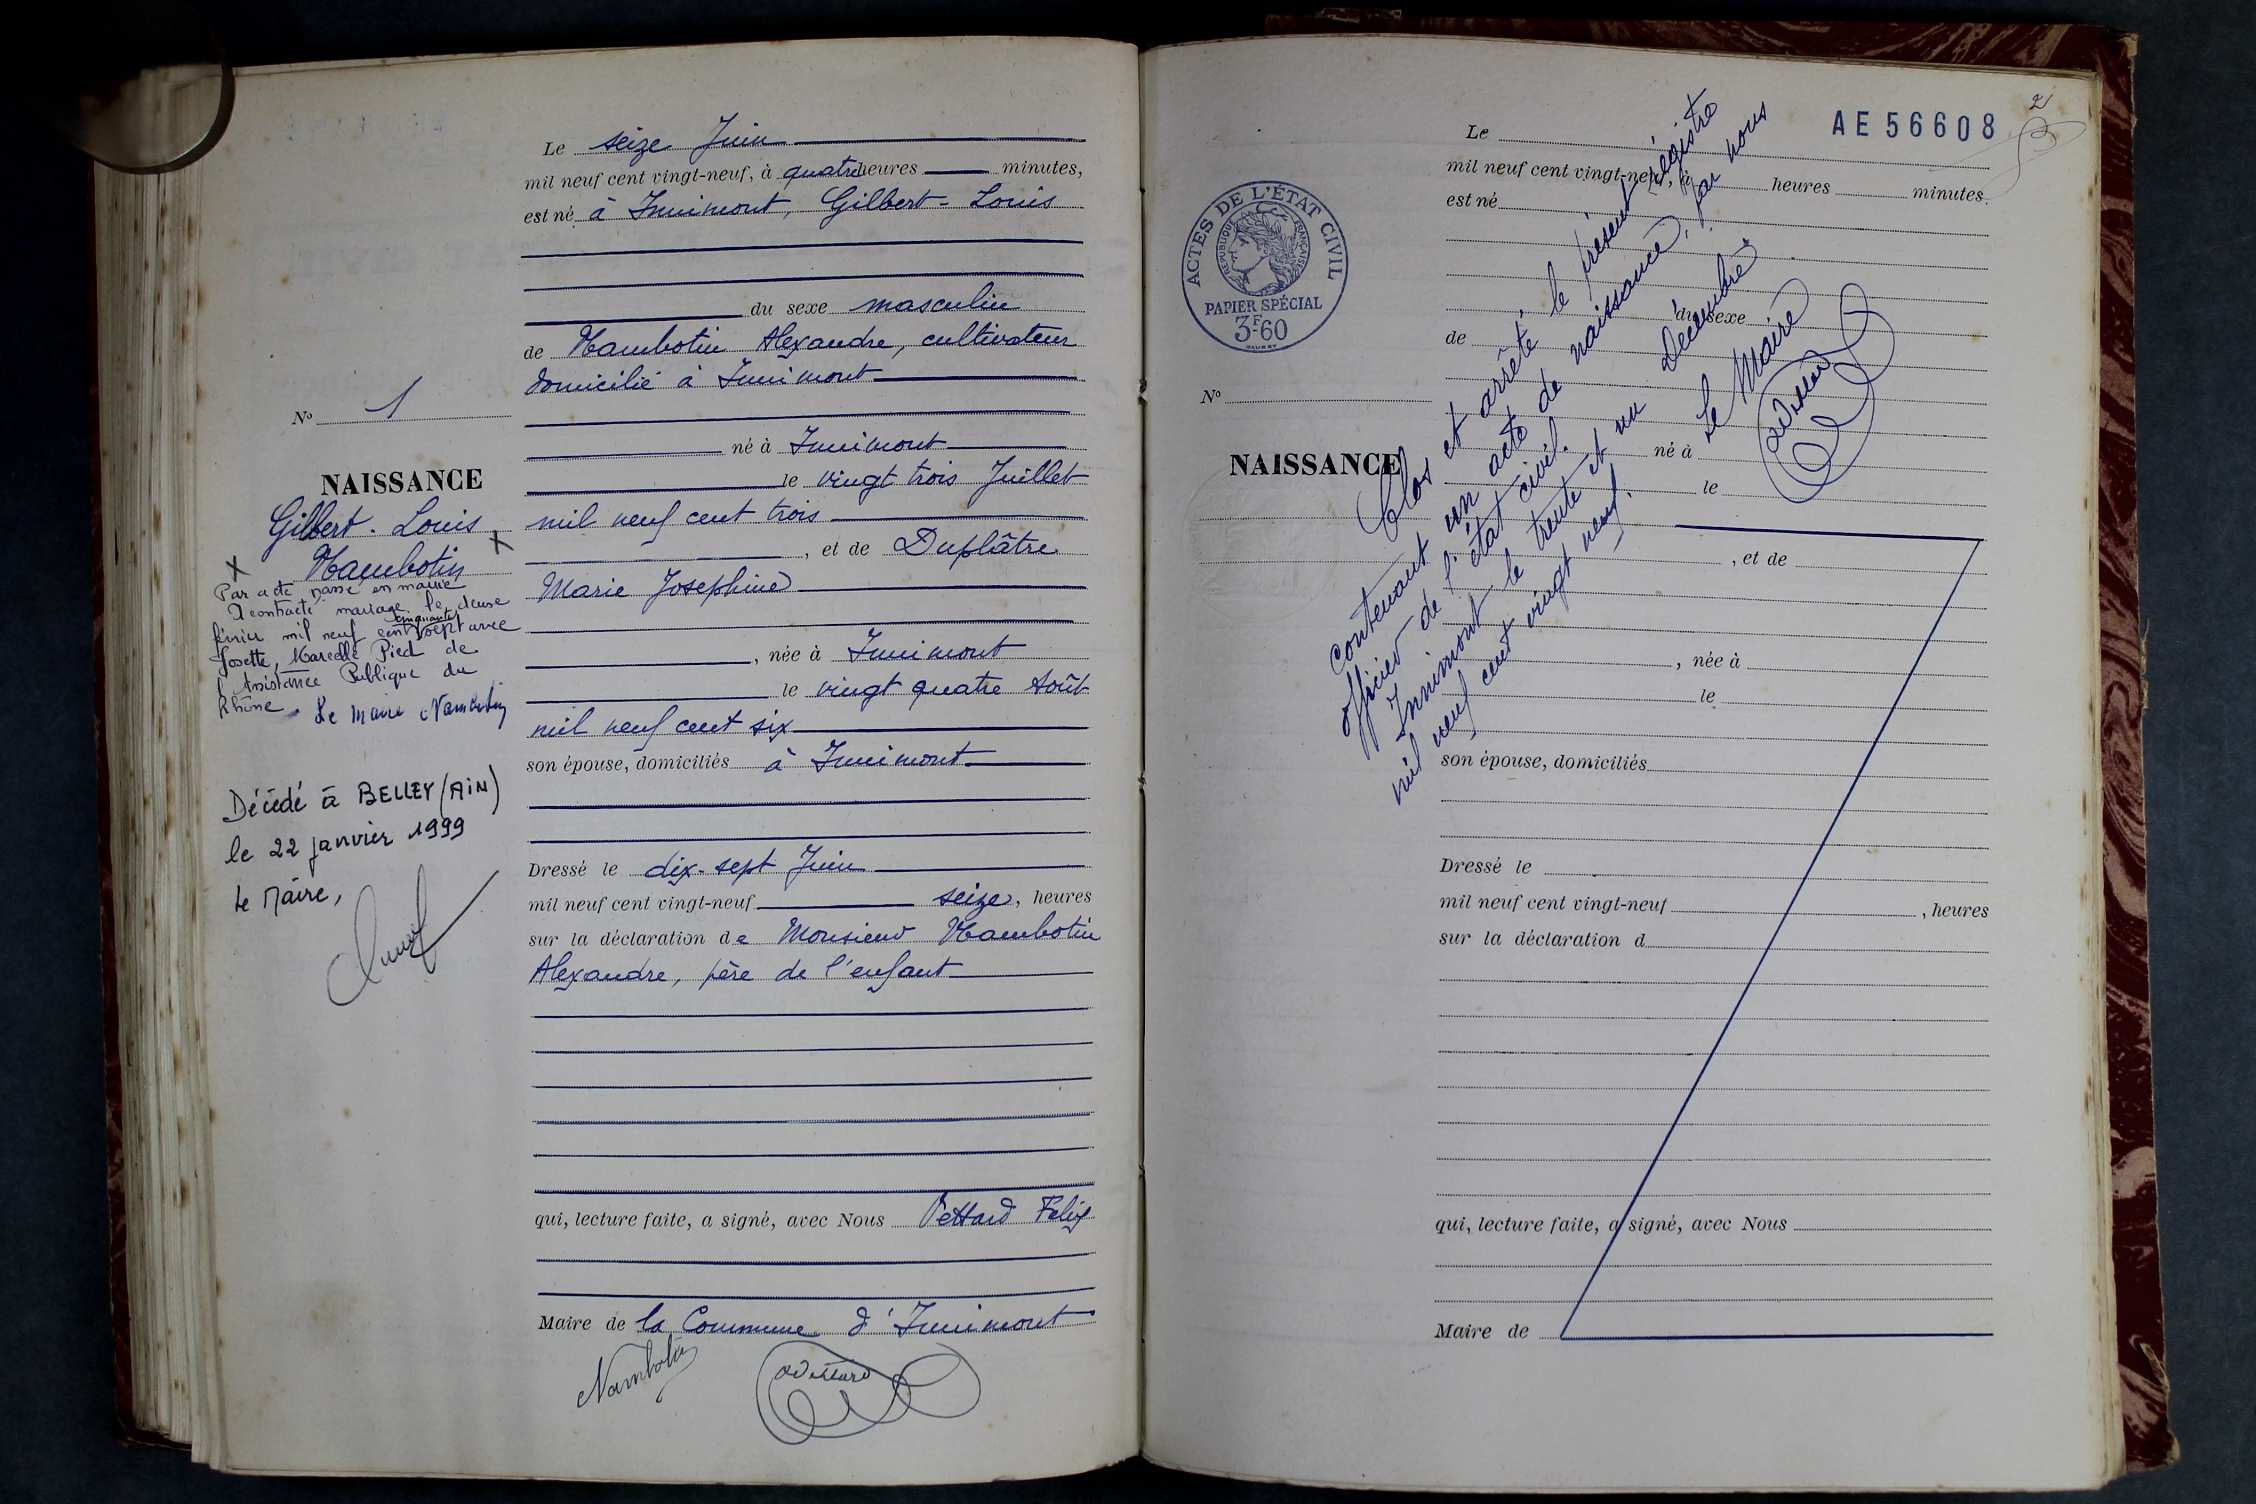 Le seize Juin
mil neuf cent vingt-neuf, à quatre heures minutes,
est né à Innimont, Gilbert-Louis
du sexe masculin
de Nambotin Alexandre, cultivateur
domicilié à Innimont
né à Innimont
le vingt trois Juillet
mil neuf cent trois
, et de Duplâtre
Marie Joséphine
, née à Innimont
le vingt quatre Août
mil neuf cent six
son épouse, domiciliés à Innimont
Dressé le dix-sept Juin
mil neuf cent vingt-neuf seize, heures
sur la déclaration de Monsieur Nambotin
Alexandre, père de l'enfant
qui, lecture faite, a signé, avec Nous Vettard Felix
Maire de la Commune d'Innimont
Nambotin
Vettard
N° 1
NAISSANCE
Gilbert-Louis
Nambotin
Par acte passé en mairie
A contracté mariage le
février mil neuf cent cinquante sept avec
Josette, Marcelle Pied de
Assistance Publique du
Rhône. Le Maire Nambotin
Décédé à BELLEY (AIN)
le 22 janvier 1999
Le Maire,
2
AE 56608
ACTES DE L'ÉTAT CIVIL
RÉPUBLIQUE FRANÇAISE
PAPIER SPÉCIAL
3F60
Le
mil neuf cent vingt-neuf, à heures minutes.
est né
du sexe
de
N°
né à
NAISSANCE
le
, et de
, née à
le
son épouse, domiciliés
Dressé le
mil neuf cent vingt-neuf , heures
sur la déclaration d
qui, lecture faite, a signé, avec Nous
Maire de
Clos et arrêté le présent régistre
contenant un acte de naissance, par nous
officier de l'état civil.
Innimont le trente et un Décembre
mil neuf cent vingt neuf.
Le Maire
Vettard